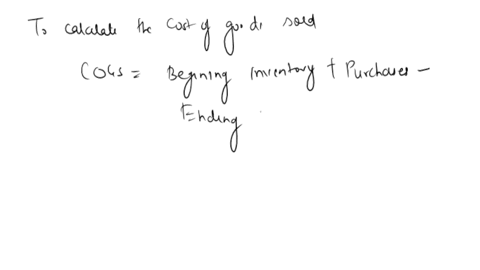 To calculate the cost of goods sold
COGS = Begining Inventory + Purchases -
Ending